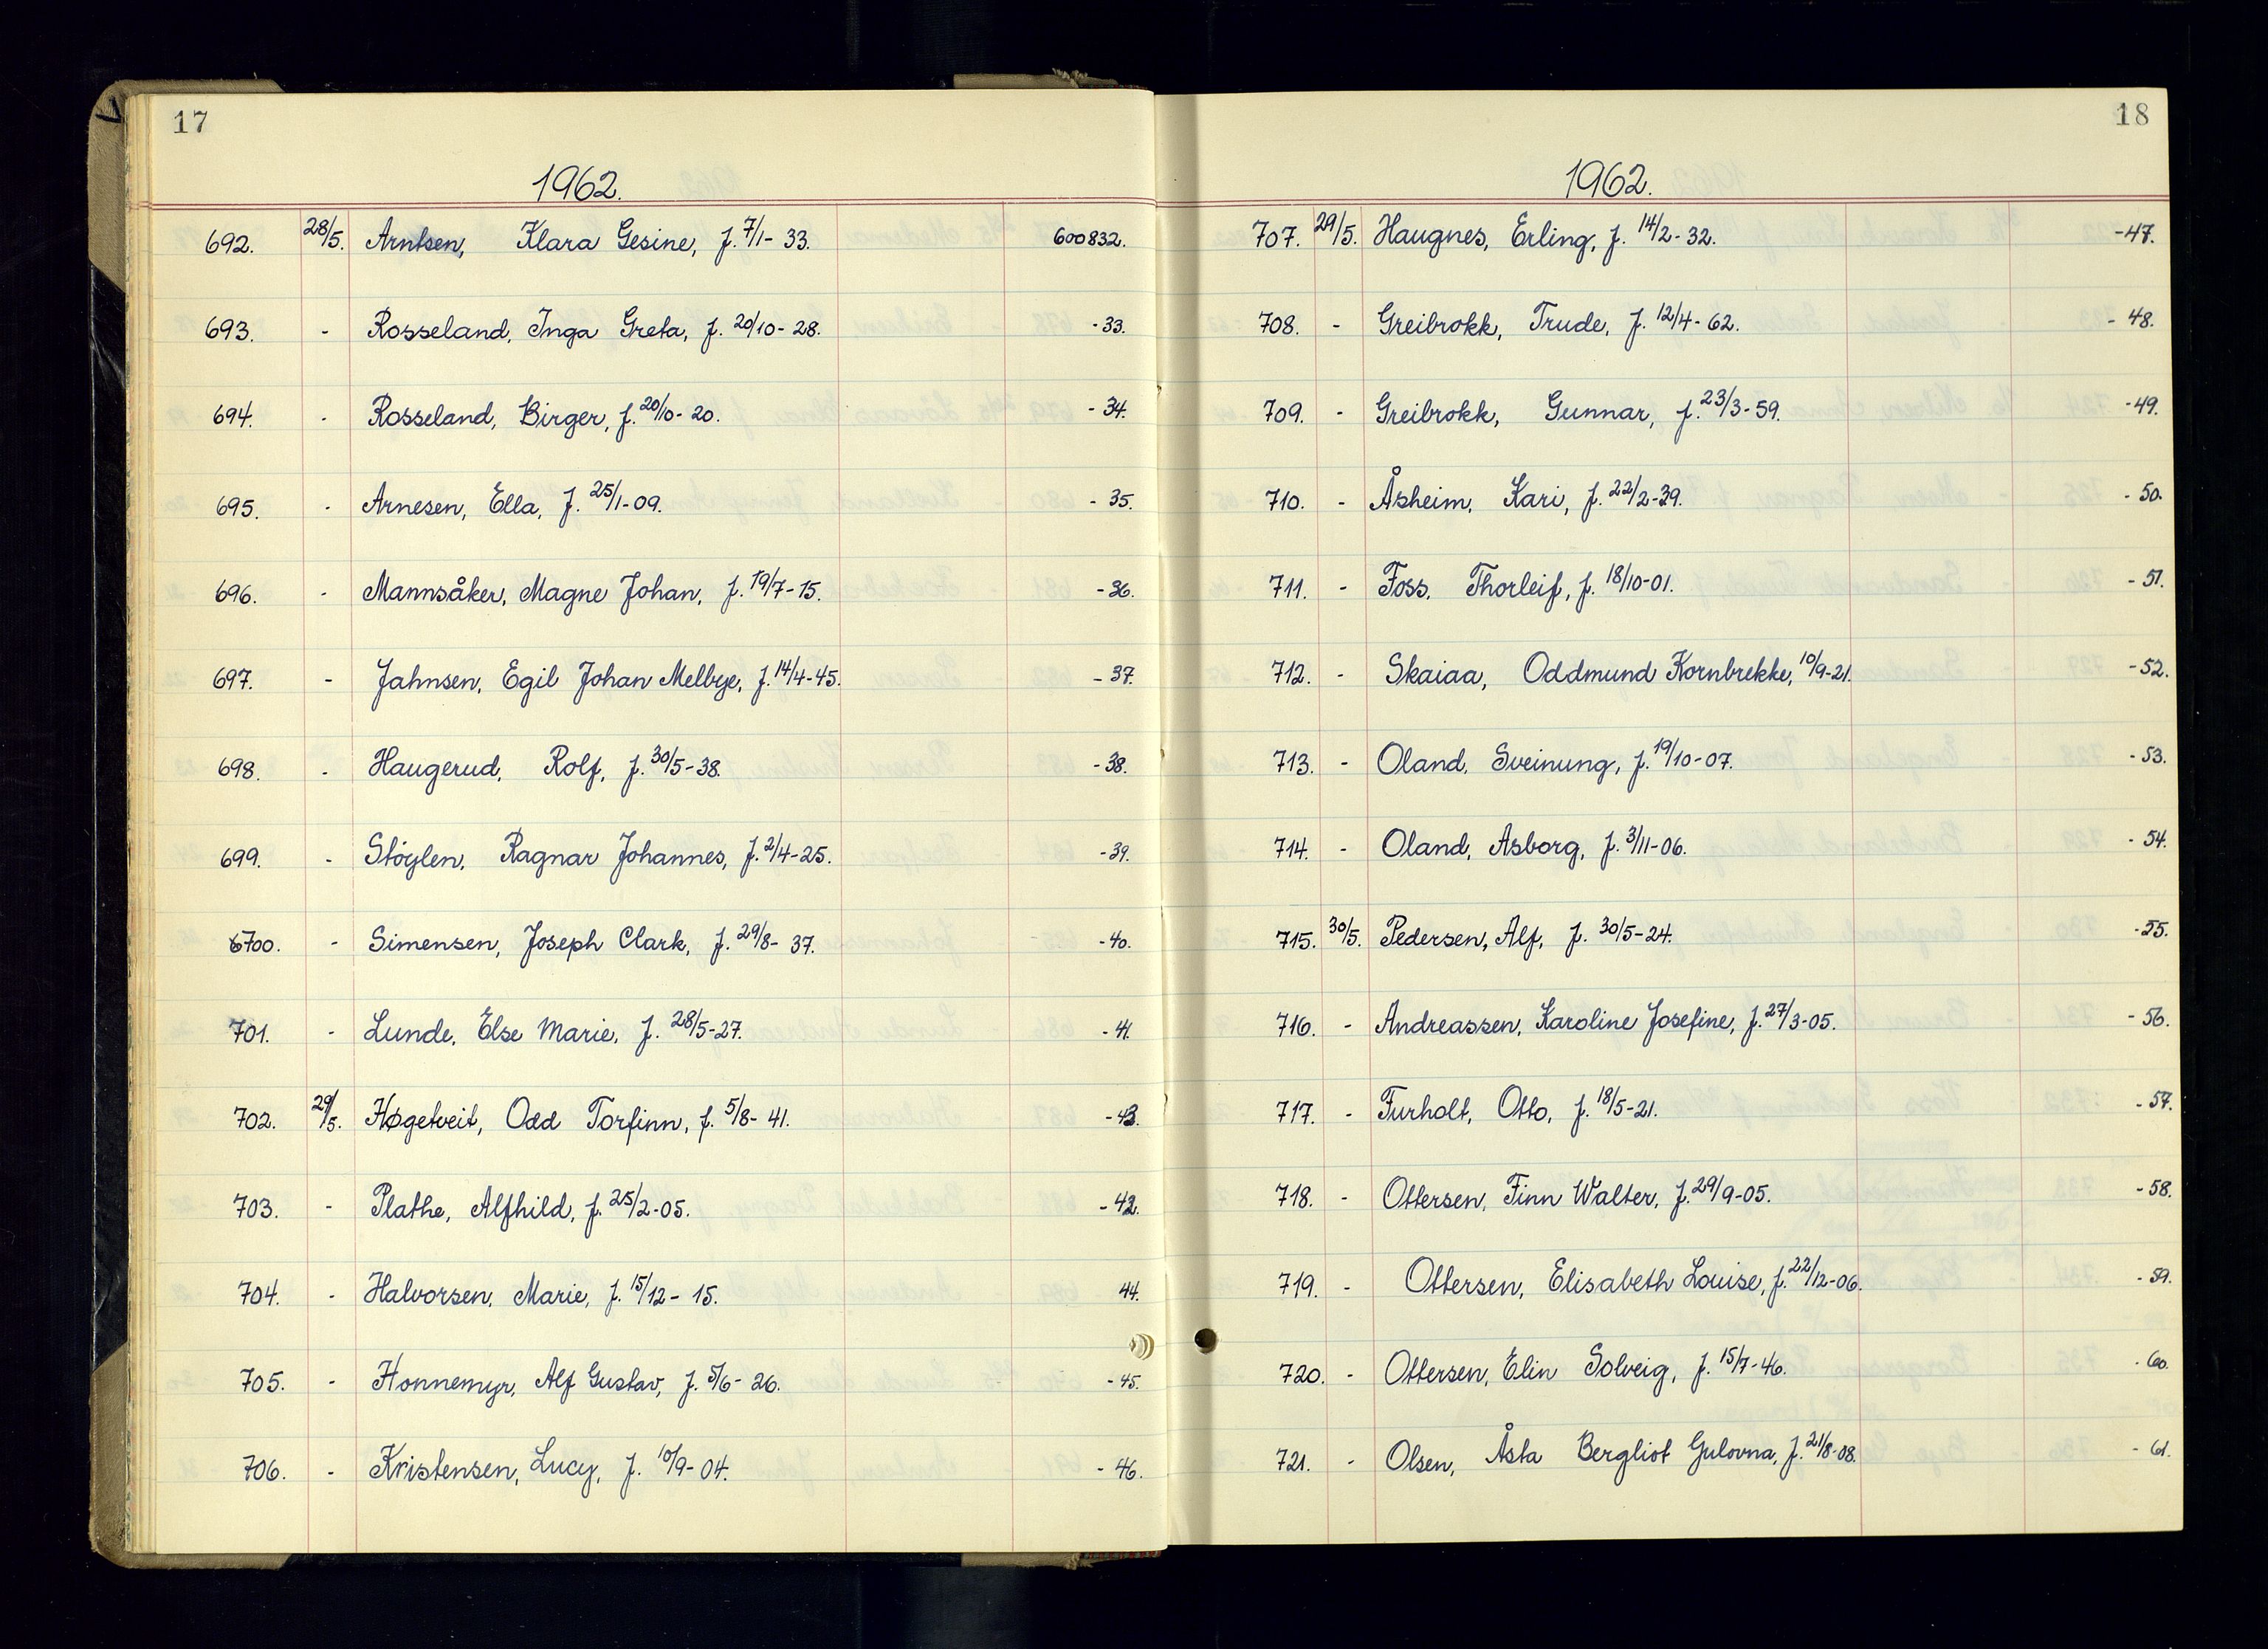 17
1962.
692. 28/5. Arntsen, Klara Gesine, f. 7/1-33. 600832.
693. - Rosseland, Inga Greta, f. 20/10-28. -33.
694. - Rosseland, Birger, f. 20/10-20. -34.
695. - Arnesen, Ella, f. 25/1-09. -35.
696. - Mannsåker, Magne Johan, f. 19/7-15. -36.
697. - Jahnsen, Egil Johan Melbye, f. 14/4-45. -37.
698. - Haugerud, Rolf, f. 30/5-38. -38.
699. - Støylen, Ragnar Johannes, f. 2/4-25. -39.
6700. - Simensen, Joseph Clark, f. 29/8-37. -40.
701. - Lunde, Else Marie, f. 28/5-27. -41.
702. 29/5. Høgetveit, Odd Torfinn, f. 5/8-41. -43.
703. - Plathe, Alfhild, f. 25/2-05. -42.
704. - Halvorsen, Marie, f. 15/12-15. 44.
705. - Honnemyr, Alf Gustav, f. 5/6-26. -45.
706. - Kristensen, Lucy, f. 10/9-04. -46.
18
1962.
707. 29/5. Haugnes, Erling, f. 14/2-32. -47.
708. - Greibrokk, Trude, f. 12/4-62. -48.
709. - Greibrokk, Gunnar, f. 23/3-59. -49.
710. - Åsheim, Kari, f. 22/2-39. -50.
711. - Foss, Thorleif, f. 18/10-01. -51.
712. - Skaiaa, Oddmund Kornbrekke, 10/9-21. -52.
713. - Oland, Sveinung, f. 19/10-07. -53.
714. - Oland, Asborg, f. 3/11-06. -54.
715. 30/5. Pedersen, Alf, f. 30/5-24. -55.
716. - Andreassen, Karoline Josefine, f. 27/3-05. -56.
717. - Furholt, Otto, f. 18/5-21. -57.
718. - Ottersen, Finn Walter, f. 29/9-05. -58.
719. - Ottersen, Elisabeth Louise, f. 22/12-06. -59.
720. - Ottersen, Elin Solveig, f. 15/7-46. -60.
721. - Olsen, Åsta Bergliot Gulovna, f. 21/8-08. -61.